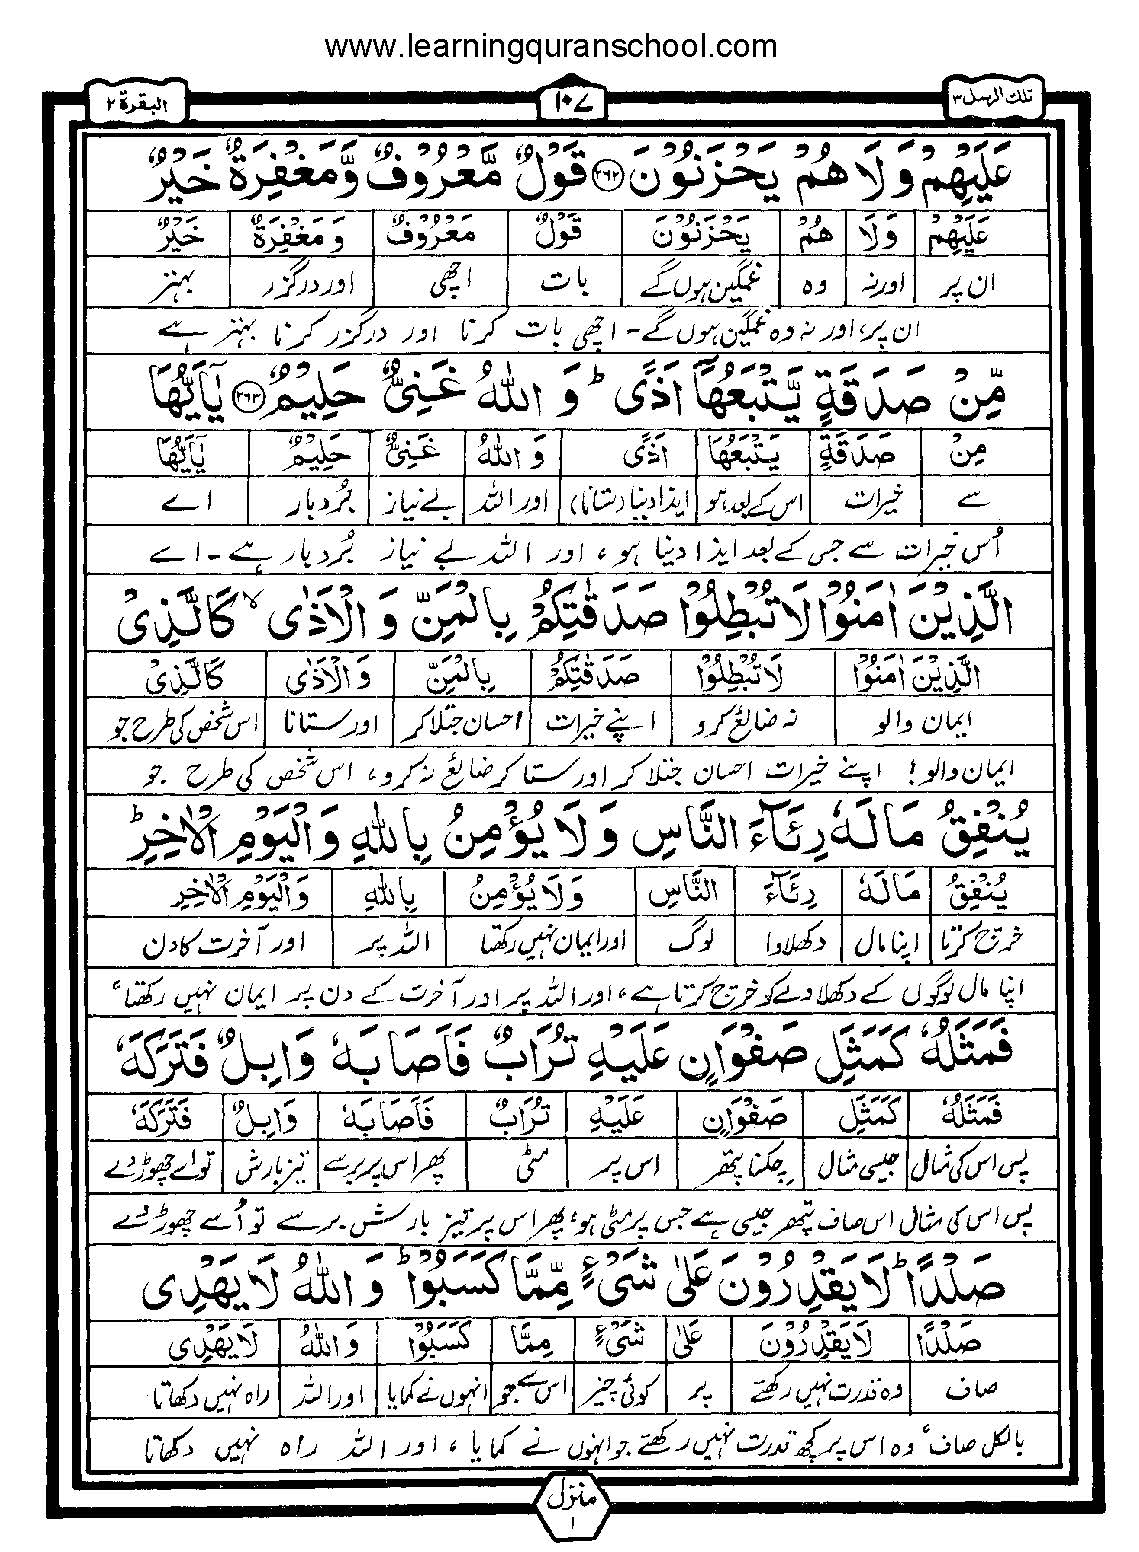 www.learningquranschool.com
تلك الرسل ٣ ١٠٧ البقرة ٢
عَلَيْهِمْ وَلَا هُمْ يَحْزَنُوْنَ ﴿۲۶۲﴾ قَوْلٌ مَّعْرُوْفٌ وَّمَغْفِرَةٌ خَيْرٌ
عَلَيْهِمْ وَلَا هُمْ يَحْزَنُوْنَ قَوْلٌ مَعْرُوْفٌ وَمَغْفِرَةٌ خَيْرٌ
ان پر اور نہ وہ غمگین ہوں گے بات اچھی اور درگزر بہتر
ان پر، اور نہ وہ غمگین ہوں گے۔ اچھی بات کرنا اور درگزر کرنا بہتر ہے
مِّنْ صَدَقَةٍ يَّتْبَعُهَآ اَذًى ؕ وَ اللّٰهُ غَنِىٌّ حَلِيْمٌ ﴿۲۶۳﴾ يٰٓاَيُّهَا
مِنْ صَدَقَةٍ يَتْبَعُهَا اَذًى وَ اللّٰهُ غَنِىٌّ حَلِيْمٌ يٰٓاَيُّهَا
سے خیرات اس کے بعد ہو ایذا دینا (ستانا) اور اللہ بے نیاز بُردبار اے
اُس خیرات سے جس کے بعد ایذا دینا ہو، اور اللہ بے نیاز بُردبار ہے۔ اے
الَّذِيْنَ اٰمَنُوْا لَا تُبْطِلُوْا صَدَقٰتِكُمْ بِالْمَنِّ وَ الْاَذٰى ۙ كَالَّذِىْ
الَّذِيْنَ اٰمَنُوْا لَا تُبْطِلُوْا صَدَقٰتِكُمْ بِالْمَنِّ وَ الْاَذٰى كَالَّذِىْ
ایمان والو نہ ضائع کرو اپنے خیرات احسان جتلا کر اور ستانا اس شخص کی طرح جو
ایمان والو! اپنے خیرات احسان جتلا کر اور ستا کر ضائع نہ کرو، اس شخص کی طرح جو
يُنْفِقُ مَالَهٗ رِئَآءَ النَّاسِ وَلَا يُؤْمِنُ بِاللّٰهِ وَالْيَوْمِ الْاٰخِرِ ؕ
يُنْفِقُ مَالَهٗ رِئَآءَ النَّاسِ وَلَا يُؤْمِنُ بِاللّٰهِ وَالْيَوْمِ الْاٰخِرِ
خرچ کرتا اپنا مال دکھلاوا لوگ اور ایمان نہیں رکھتا اللہ پر اور آخرت کا دن
اپنا مال لوگوں کے دکھلاوے کو خرچ کرتا ہے، اور اللہ پر اور آخرت کے دن پر ایمان نہیں رکھتا،
فَمَثَلُهٗ كَمَثَلِ صَفْوَانٍ عَلَيْهِ تُرَابٌ فَاَصَابَهٗ وَابِلٌ فَتَرَكَهٗ
فَمَثَلُهٗ كَمَثَلِ صَفْوَانٍ عَلَيْهِ تُرَابٌ فَاَصَابَهٗ وَابِلٌ فَتَرَكَهٗ
پس اس کی مثال جیسی مثال چکنا پتھر اس پر مٹی پھر اس پر برسے تیز بارش تو اسے چھوڑ دے
پس اس کی مثال اس صاف پتھر جیسی ہے جس پر مٹی ہو، پھر اس پر تیز بارش برسے تو اُسے چھوڑ دے
صَلْدًا ؕ لَا يَقْدِرُوْنَ عَلٰى شَىْءٍ مِّمَّا كَسَبُوْا ؕ وَ اللّٰهُ لَا يَهْدِى
صَلْدًا لَا يَقْدِرُوْنَ عَلٰى شَىْءٍ مِمَّا كَسَبُوْا وَ اللّٰهُ لَا يَهْدِى
صاف وہ قدرت نہیں رکھتے پر کوئی چیز اس سے جو انہوں نے کمایا اور اللہ راہ نہیں دکھاتا
بالکل صاف، وہ اس پر کچھ قدرت نہیں رکھتے جو انہوں نے کمایا، اور اللہ راہ نہیں دکھاتا
منزل ١